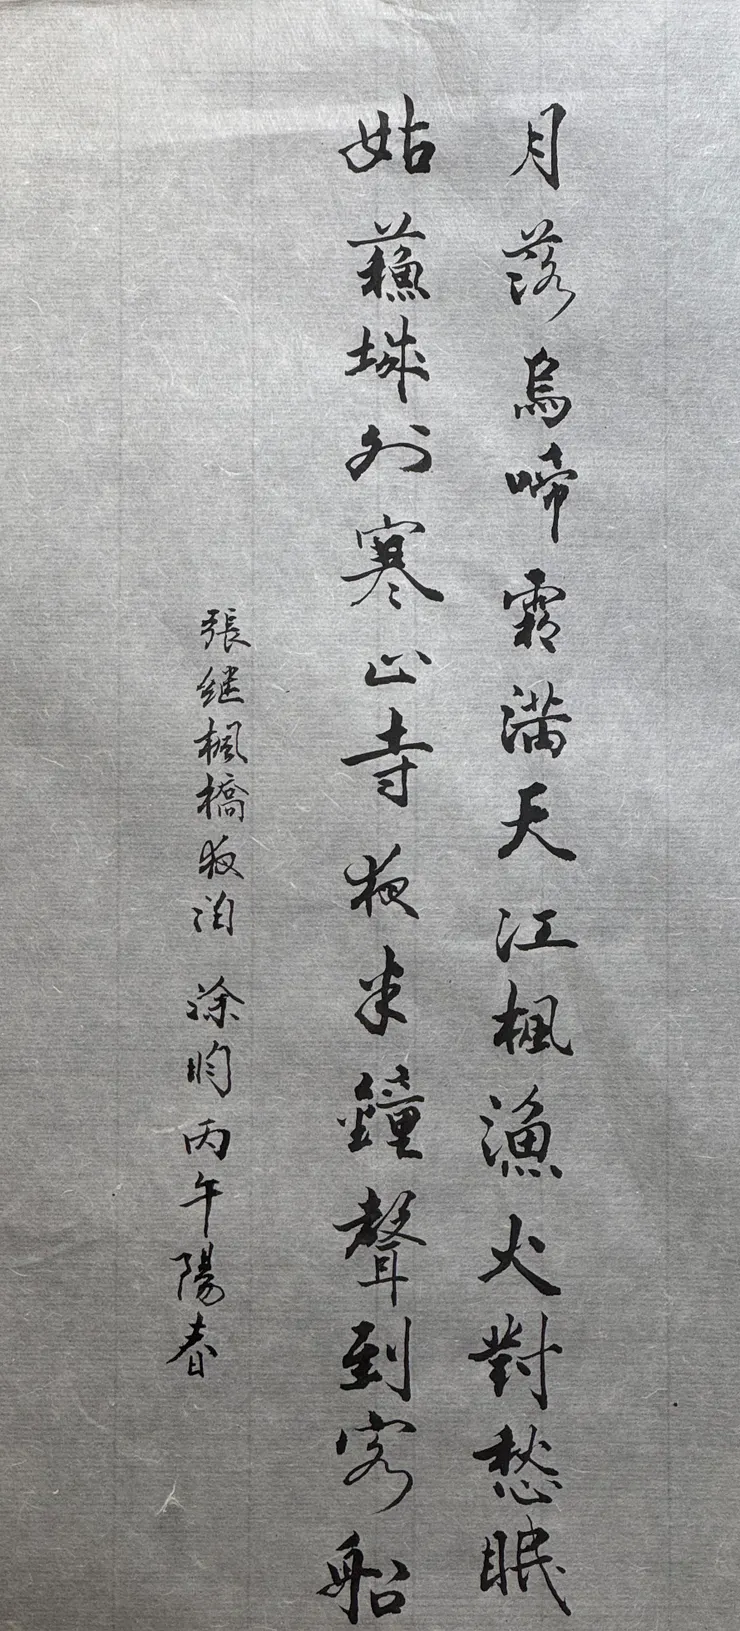 月落烏啼霜满天江楓漁火對愁眠
姑蘇城外寒山寺夜半鐘聲到客船
張继楓橋夜泊 涂昀丙午陽春